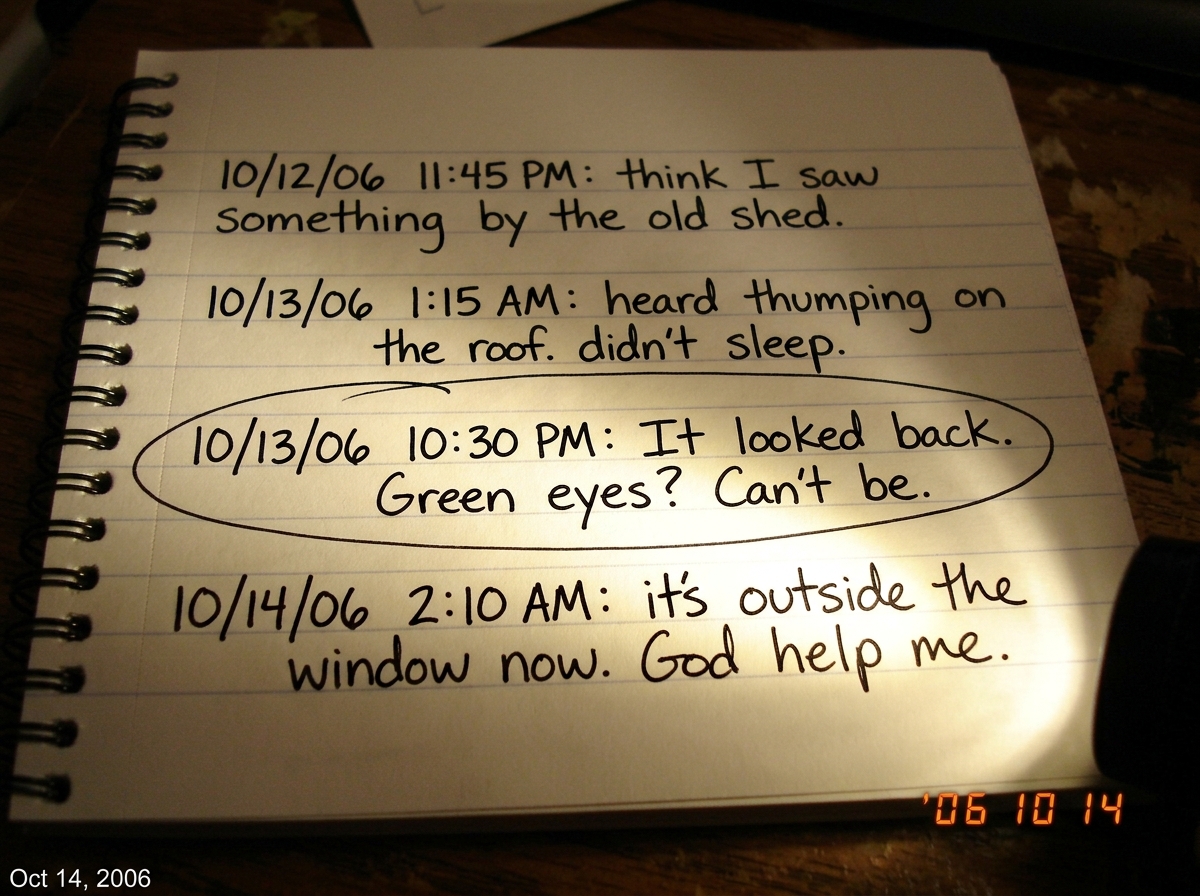 10/12/06 11:45 PM: think I saw
something by the old shed.
10/13/06 1:15 AM: heard thumping on
the roof. didn't sleep.
10/13/06 10:30 PM: It looked back.
Green eyes? Can't be.
10/14/06 2:10 AM: it's outside the
window now. God help me.
'06 10 14
Oct 14, 2006